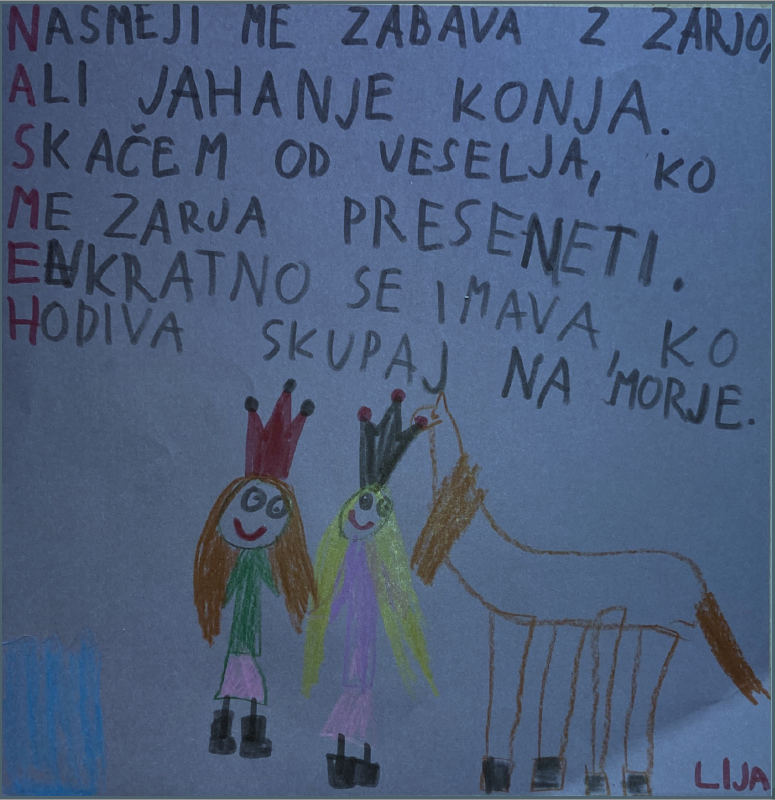 NASMEJI ME ZABAVA Z ZARJO,
ALI JAHANJE KONJA.
SKAČEM OD VESELJA, KO
ME ZARJA PRESENETI.
ENKRATNO SE IMAVA, KO
HODIVA SKUPAJ NA MORJE.
LIJA